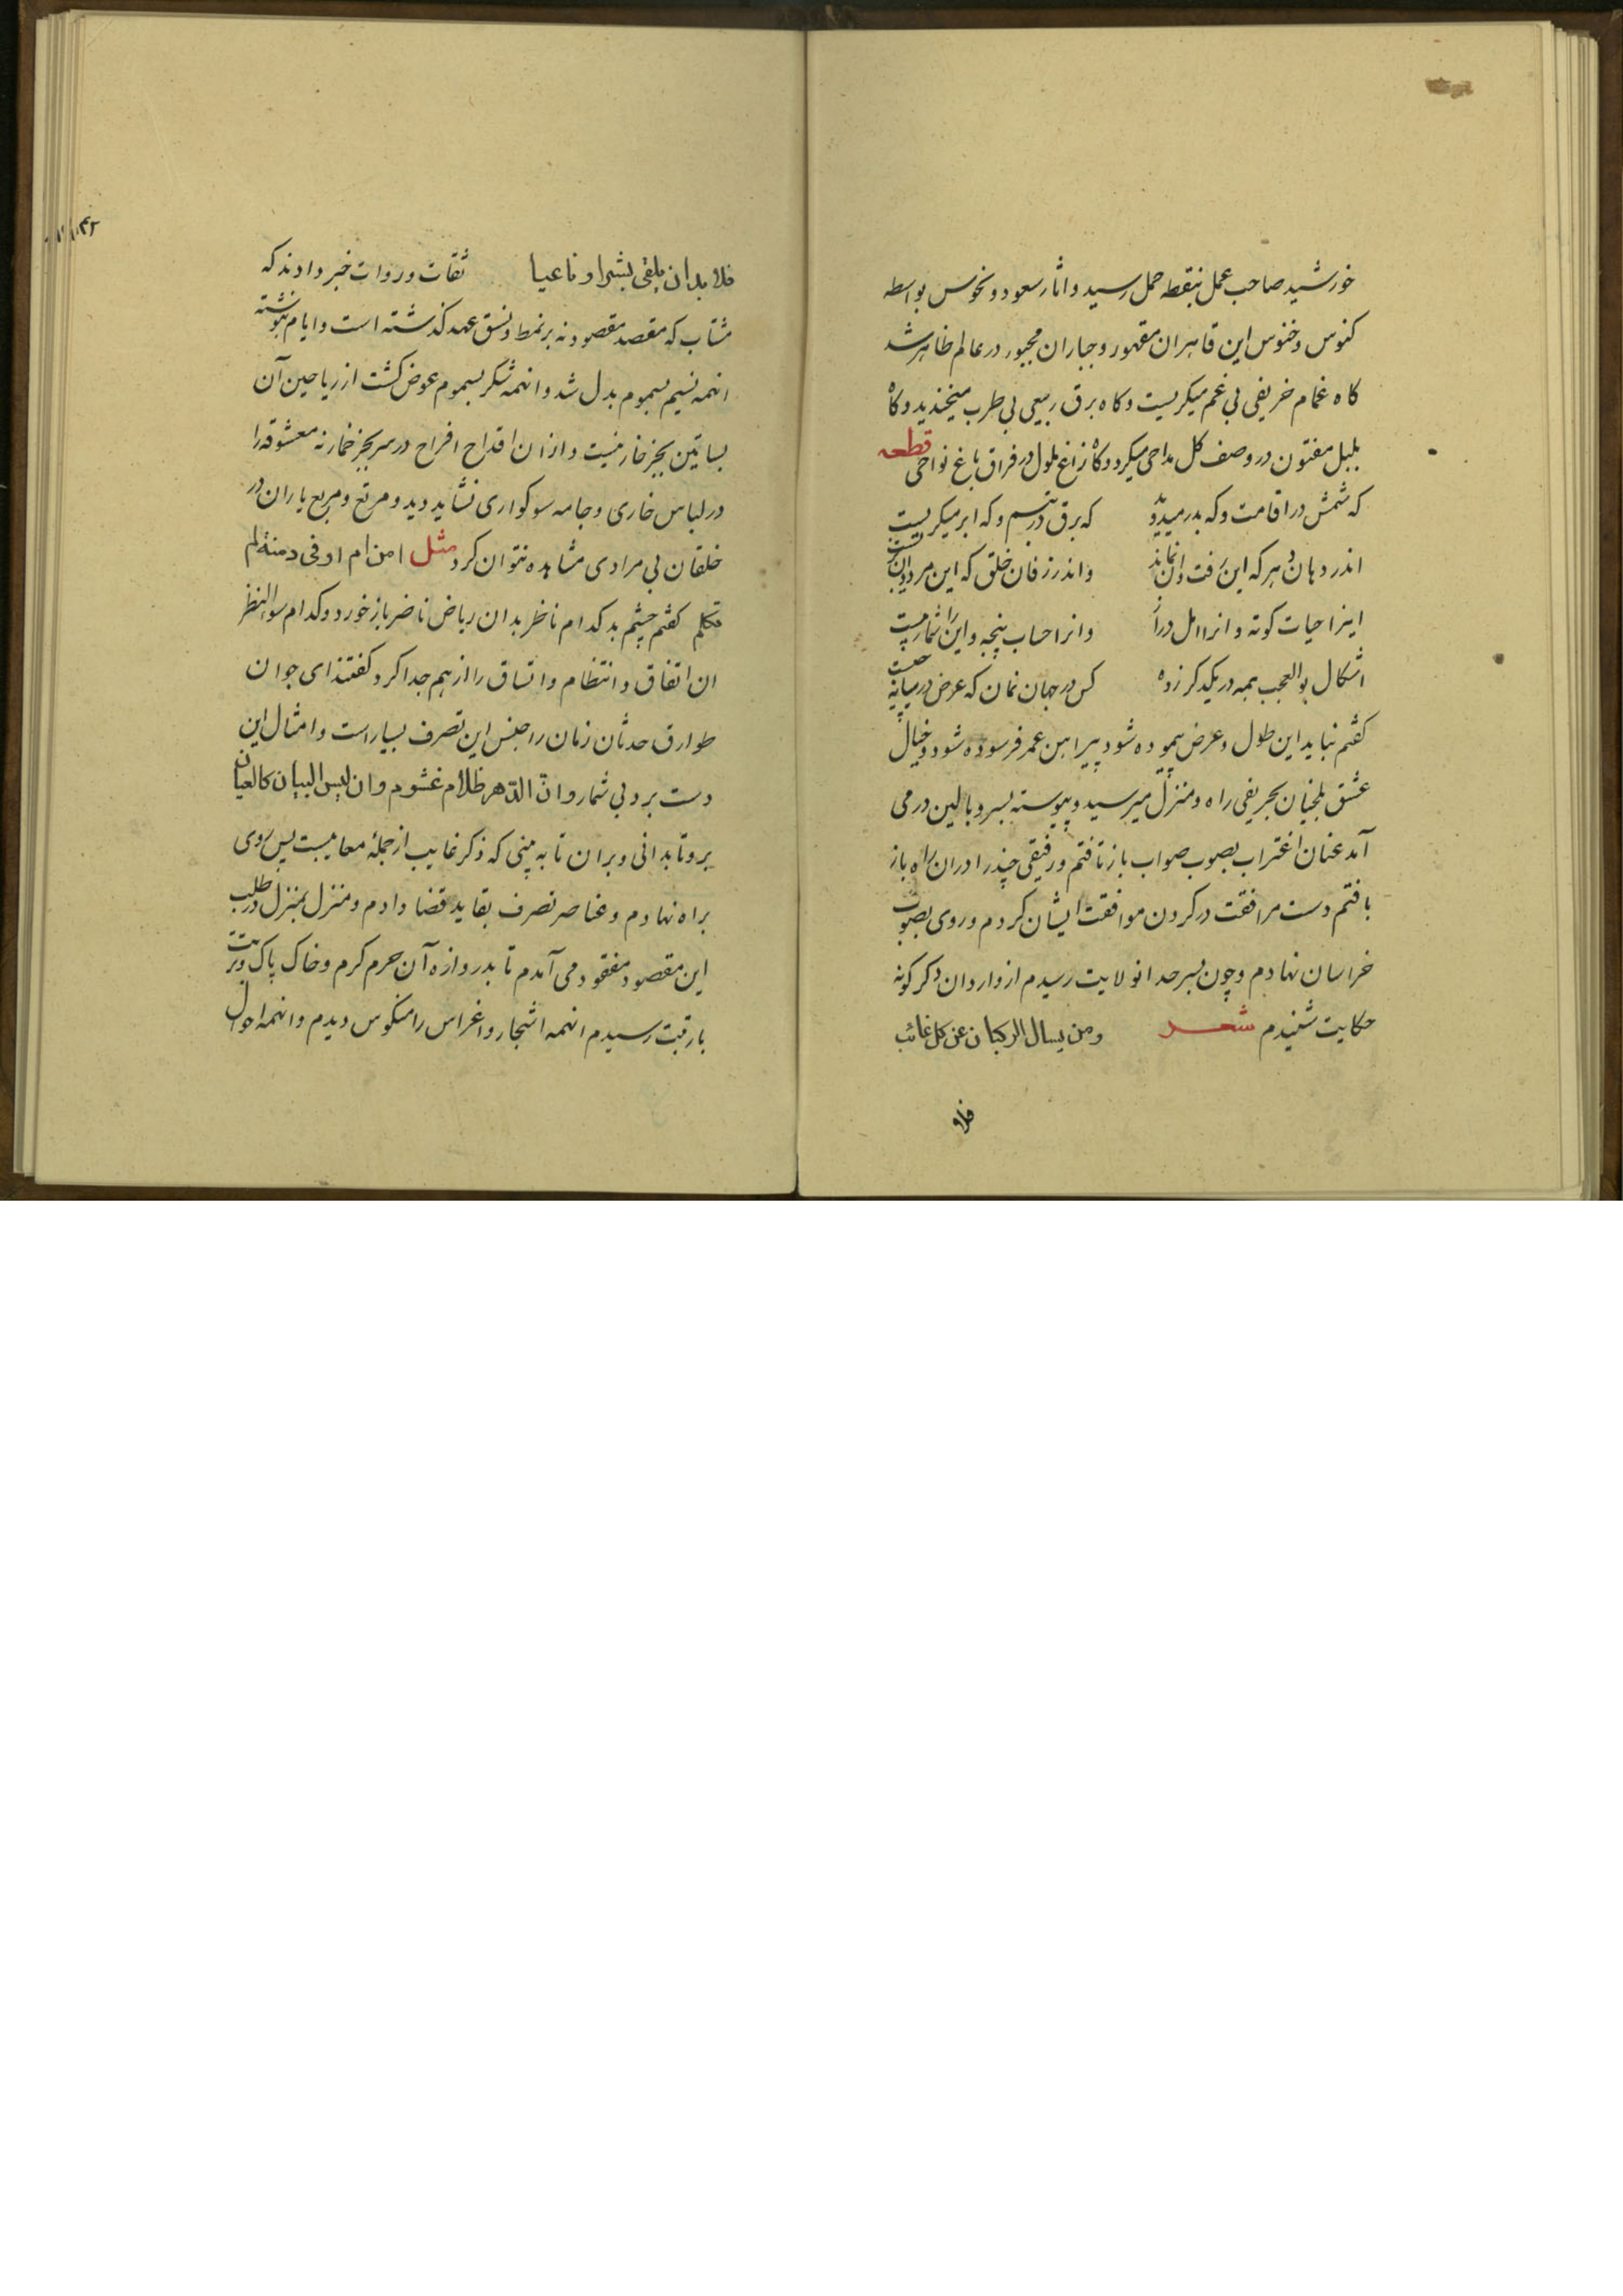 خورشید صاحب عمل بنقطه حمل رسید و اثار سعود و نحوس بواسطه
کنوس و خنوس این قاهران مقهور و جباران مجبور در عالم ظاهر شد
کاه غمام خریفی بی غم میکریست و کاه برق ربیعی بی طرب میخندید و کاه
بلبل مفتون در وصف کل مداحی میکرد و کاه زاغ ملول در فراق باغ نواحی قطعه
که شمش در اقامت و که بدر میدرود
که برق در تبسم و که ابر میکریست
اندر دهان هر که این رفت و ان نماند
و اندر زفان خلق که این مرد و ان نزیست
اینرا حیات کوته و انرا امل دراز
و انرا حساب پنجه و این را شمار بیست
اشکال بو العجب همه در یکدکر زده
کس در جهان نمان که عرض در میانه چیست
کفتم نباید این طول و عرض پیموده شود و پیراهن عمر فرسوده شود و خیال
عشق بلخیان بحریفی راه و منزل میرسید و پیوسته بسر و بالین در می
آمد عنان اغتراب بصوب صواب باز تافتم و رفیقی چند را دران راه باز
یافتم دست مرافقت در کردن موافقت ایشان کردم و روی بصوب
خراسان نهادم و چون بسرحد انولایت رسیدم از واردان دکر کونه
حکایت شنیدم شعر
ومن یسال الرکبان عن کل غائب
فلا
فلا بد ان یلقی بشیرا و ناعیا
ثقات و روات خبر دادند که
مشتاب که مقصد مقصود نه بر نمط و نسق عهد کذشته است و ایام نبوشته
انهمه نسیم بسموم بدل شد و انهمه شکر بسموم عوض کشت از ریاحین آن
بساتین بجز خار نیست و ازان اقداح افراح در سر بجز خمار نه معشوقه را
در لباس خاری و جامه سوکواری نشاید دید و مرتع و مربع یاران در
خلقان بی مرادی مشاهده نتوان کرد مثل امن ام اوفی دمنة لم
تکلم کفتم چشم بد کدام ناظر بدان ریاض ناضر باز خورد و کدام سوالنظر
ان اتفاق و انتظام و اتساق را از هم جدا کرد کفتند ای جوان
طوارق حدثان زمان را جنس این تصرف بسیار است و امثال این
دست برد بی شمار وان الدهر ظلام غشوم وان لیس البیان کالعیان
برو تا بدانی و بران تا به بینی که ذکر غایب از جمله معایبست پس روی
براه نهادم و عناصر تصرف بقاید قضا دادم و منزل بمنزل در طلب
این مقصود مفقود می آمدم تا بدروازه آن حرم کرم و خاک پاک و تربت
با رتبت رسیدم انهمه اشجار و اغراس را منکوس دیدم و انهمه احوال